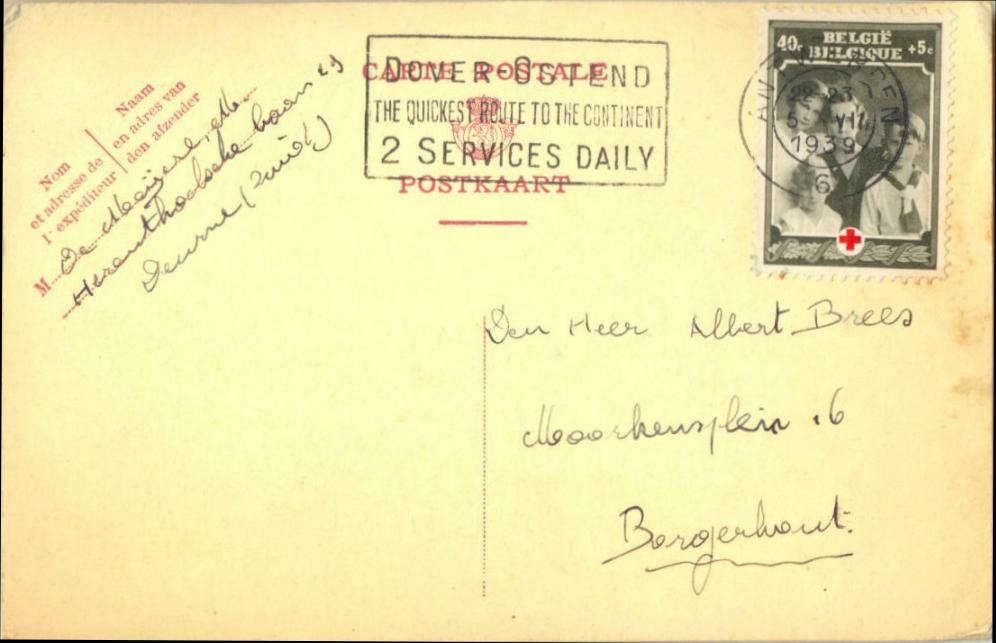 Nom
et adresse de
l'expéditeur
Naam
en adres van
den afzender
M. De Meyere, M.
Herenthoutsche baan 29
Deurne (Zuid)
CARTE POSTALE
POSTKAART
DOVER-OSTEND
THE QUICKEST ROUTE TO THE CONTINENT
2 SERVICES DAILY
BELGIË
BELGIQUE
40c +5c
ANTWERPEN
22-23
5 VII
1939
6
Den Heer Albert Brees
Moorkensplein 16
Borgerhout.